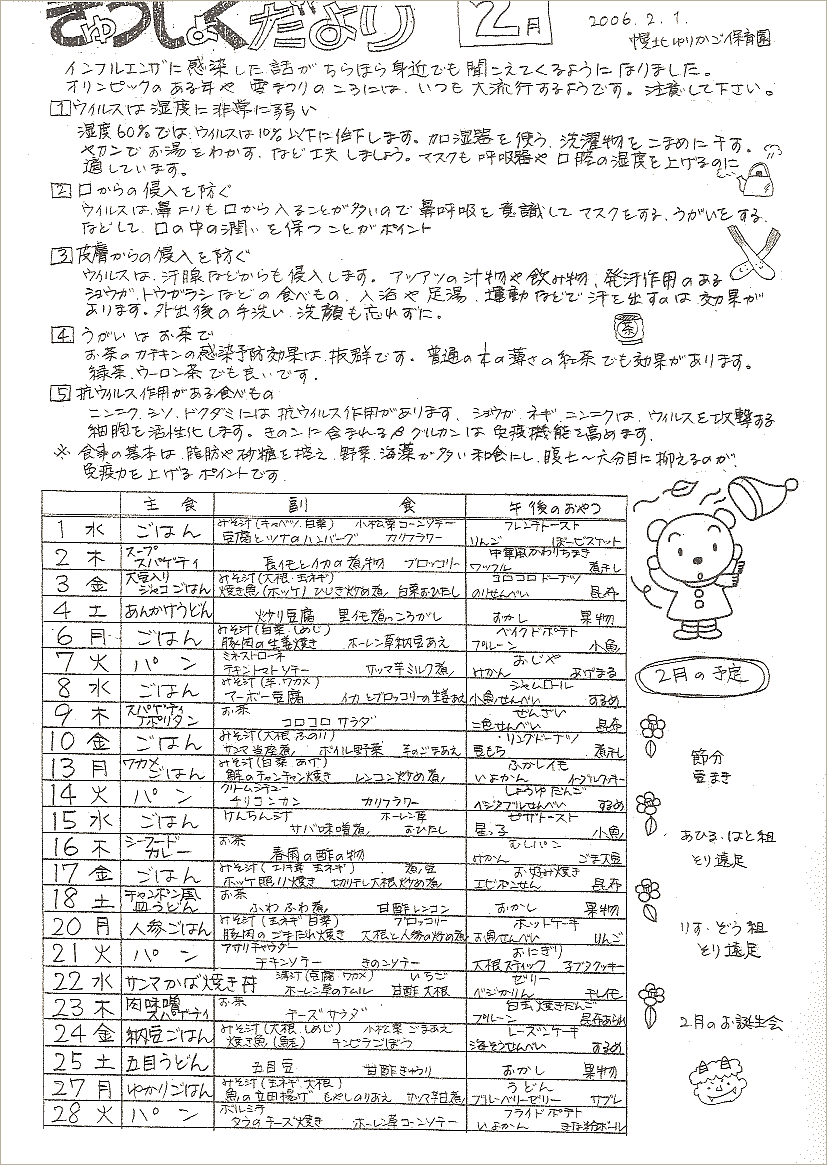 きゅうしょくだより 2月 2006.2.1.
幌北ゆりかご保育園
インフルエンザに感染した話がちらほら身近でも聞こえてくるようになりました。
オリンピックのある年や雪まつりのころには、いつも大流行するようです。注意して下さい。
1 ウィルスは湿度に非常に弱い
湿度60%では、ウィルスは10%以下に低下します。加湿器を使う、洗濯物をこまめに干す。
ヤカンでお湯をわかす、など工夫しましょう。マスクも呼吸器や口腔の湿度を上げるのに
適しています。
2 口からの侵入を防ぐ
ウィルスは、鼻よりも口から入ることが多いので鼻呼吸を意識してマスクをする、うがいをする、
などして、口の中の潤いを保つことがポイント
3 皮膚からの侵入を防ぐ
ウィルスは、汗腺などからも侵入します。アツアツの汁物や飲み物、発汗作用のある
ショウガ、トウガラシなどの食べもの、入浴や足湯、運動などで汗を出すのは効果が
あります。外出後の手洗い、洗顔も忘れずに。
4 うがいはお茶で
茶
お茶のカテキンの感染予防効果は、抜群です。普通の1/4の薄さの紅茶でも効果があります。
緑茶、ウーロン茶でも良いです。
5 抗ウィルス作用がある食べもの
ニンニク、シソ、ドクダミには抗ウィルス作用があります、ショウガ、ネギ、ニンニクは、ウィルスを攻撃する
細胞を活性化します。きのこに含まれるβグルカンは免疫機能を高めます。
※ 食事の基本は、脂肪や砂糖を控え、野菜、海藻が多い和食にし、腹七〜六分目に抑えるのが、
免疫力を上げるポイントです。
主食 副食 午後のおやつ
1 水 ごはん みそ汁(キャベツ、白菜) 小松菜コーンソテー フレンチトースト
豆腐とツナのハンバーグ カリフラワー りんご
2 木 スープスパゲティ 長イモとイカの煮物 ブロッコリー 中華風かわりちまき
ワッフル 煮干し
3 金 大豆入りジャコごはん みそ汁(大根・玉ネギ) コロコロドーナツ
焼き魚(ホッケ) ひじき炒め煮、白菜おひたし のりせんべい 昆布
4 土 あんかけうどん 炒り豆腐 里イモ煮っころがし おかし 果物
6 月 ごはん みそ汁(白菜・しめじ) ベイクドポテト
豚肉の生姜焼き ホーレン草納豆あえ プルーン 小魚
7 火 パン ミネストローネ おじや
チキントマトソテー サツマ芋ミルク煮 みかん あげまる
8 水 ごはん みそ汁(芋、ワカメ) ジャムロール
マーボー豆腐 イカとブロッコリーの生姜あえ 小魚せんべい するめ
9 木 スパゲティナポリタン お茶 ぜんざい
コロコロサラダ 二色せんべい 昆布
10 金 ごはん みそ汁(大根、ふのり) リングドーナツ
サンマ当座煮 ボイル野菜 芋のごまあえ 豆もち 煮干し
13 月 ワカメごはん みそ汁(白菜 あげ) ふかしイモ
鮭のチャンチャン焼き レンコン炒め煮 いよかん
14 火 パン クリームシチュー しょうゆだんご
チリコンカン カリフラワー ベジタブルせんべい するめ
15 水 ごはん けんちん汁 ホーレン草 ピザトースト
サバ味噌煮 おひたし 星っ子 小魚
16 木 シーフードカレー お茶 むしパン
春雨の酢の物 みかん ごま大豆
17 金 ごはん みそ汁( 玉ネギ) 煮豆 お好み焼き
ホッケ照り焼き 切り干し大根炒め煮 エビポンせん 昆布
18 土 チャンポン風皿うどん お茶
ふわふわ煮 甘酢レンコン おかし 果物
20 月 人参ごはん みそ汁(玉ネギ 白菜) ブロッコリー ホットケーキ
豚肉のごまだれ焼き 大根と人参の炒め煮 お魚せんべい りんご
21 火 パン アサリチャウダー おにぎり
チキンソテー きのこソテー 大根スティック
22 水 サンマかば焼き丼 清汁(豆腐・ワカメ) いちご ゼリー
ホーレン草のナムル 甘酢大根 ベジかりん チレモ
23 木 肉味噌スパゲティ お茶 白玉焼きだんご
チーズサラダ プルーン 昆布あられ
24 金 納豆ごはん みそ汁(大根、しめじ) 小松菜ごまあえ レーズンケーキ
焼き魚(鮭) キンピラごぼう 海そうせんべい するめ
25 土 五目うどん 五目豆 甘酢きゅうり おかし 果物
27 月 ゆかりごはん みそ汁(玉ネギ、大根) うどん
魚の立田揚げ もやしのりあえ サツマ芋甘煮 ブルーベリーゼリー サブレ
28 火 パン ボルシチ フライドポテト
タラのチーズ焼き ホーレン草コーンソテー いよかん きな粉ボール
2月の予定
節分
豆まき
あひる・はと組
そり遠足
りす・ぞう組
そり遠足
2月のお誕生会